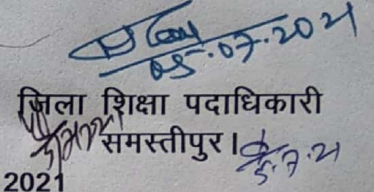 05.07.2021
जिला शिक्षा पदाधिकारी
समस्तीपुर।
5.7.21
2021